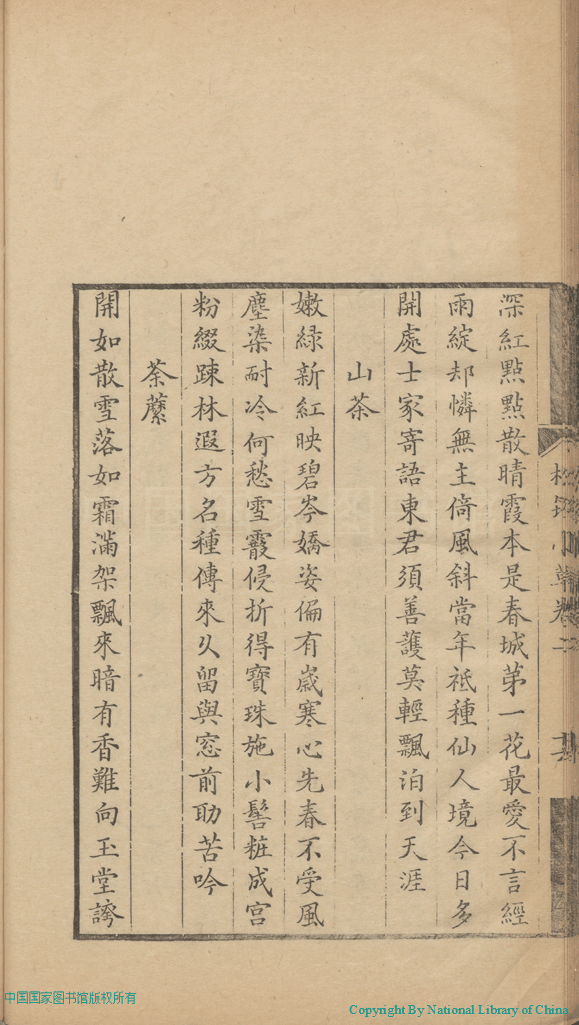 深紅點點散晴霞本是春城苐一花最愛不言經
雨綻却憐無主倚風斜當年祗種仙人境今日多
開處士家寄語東君須善護莫輕飄泊到天涯
山茶
嫩緑新紅映碧岑嬌姿偏有歲寒心先春不受風
塵染耐冷何愁雪霰侵折得寶珠施小髻粧成宮
粉綴踈林遐方名種傳來久留與窓前助苦吟
荼蘼
開如散雪落如霜滿架飄來暗有香難向玉堂誇
中国国家图书馆版权所有
Copyright By National Library of China